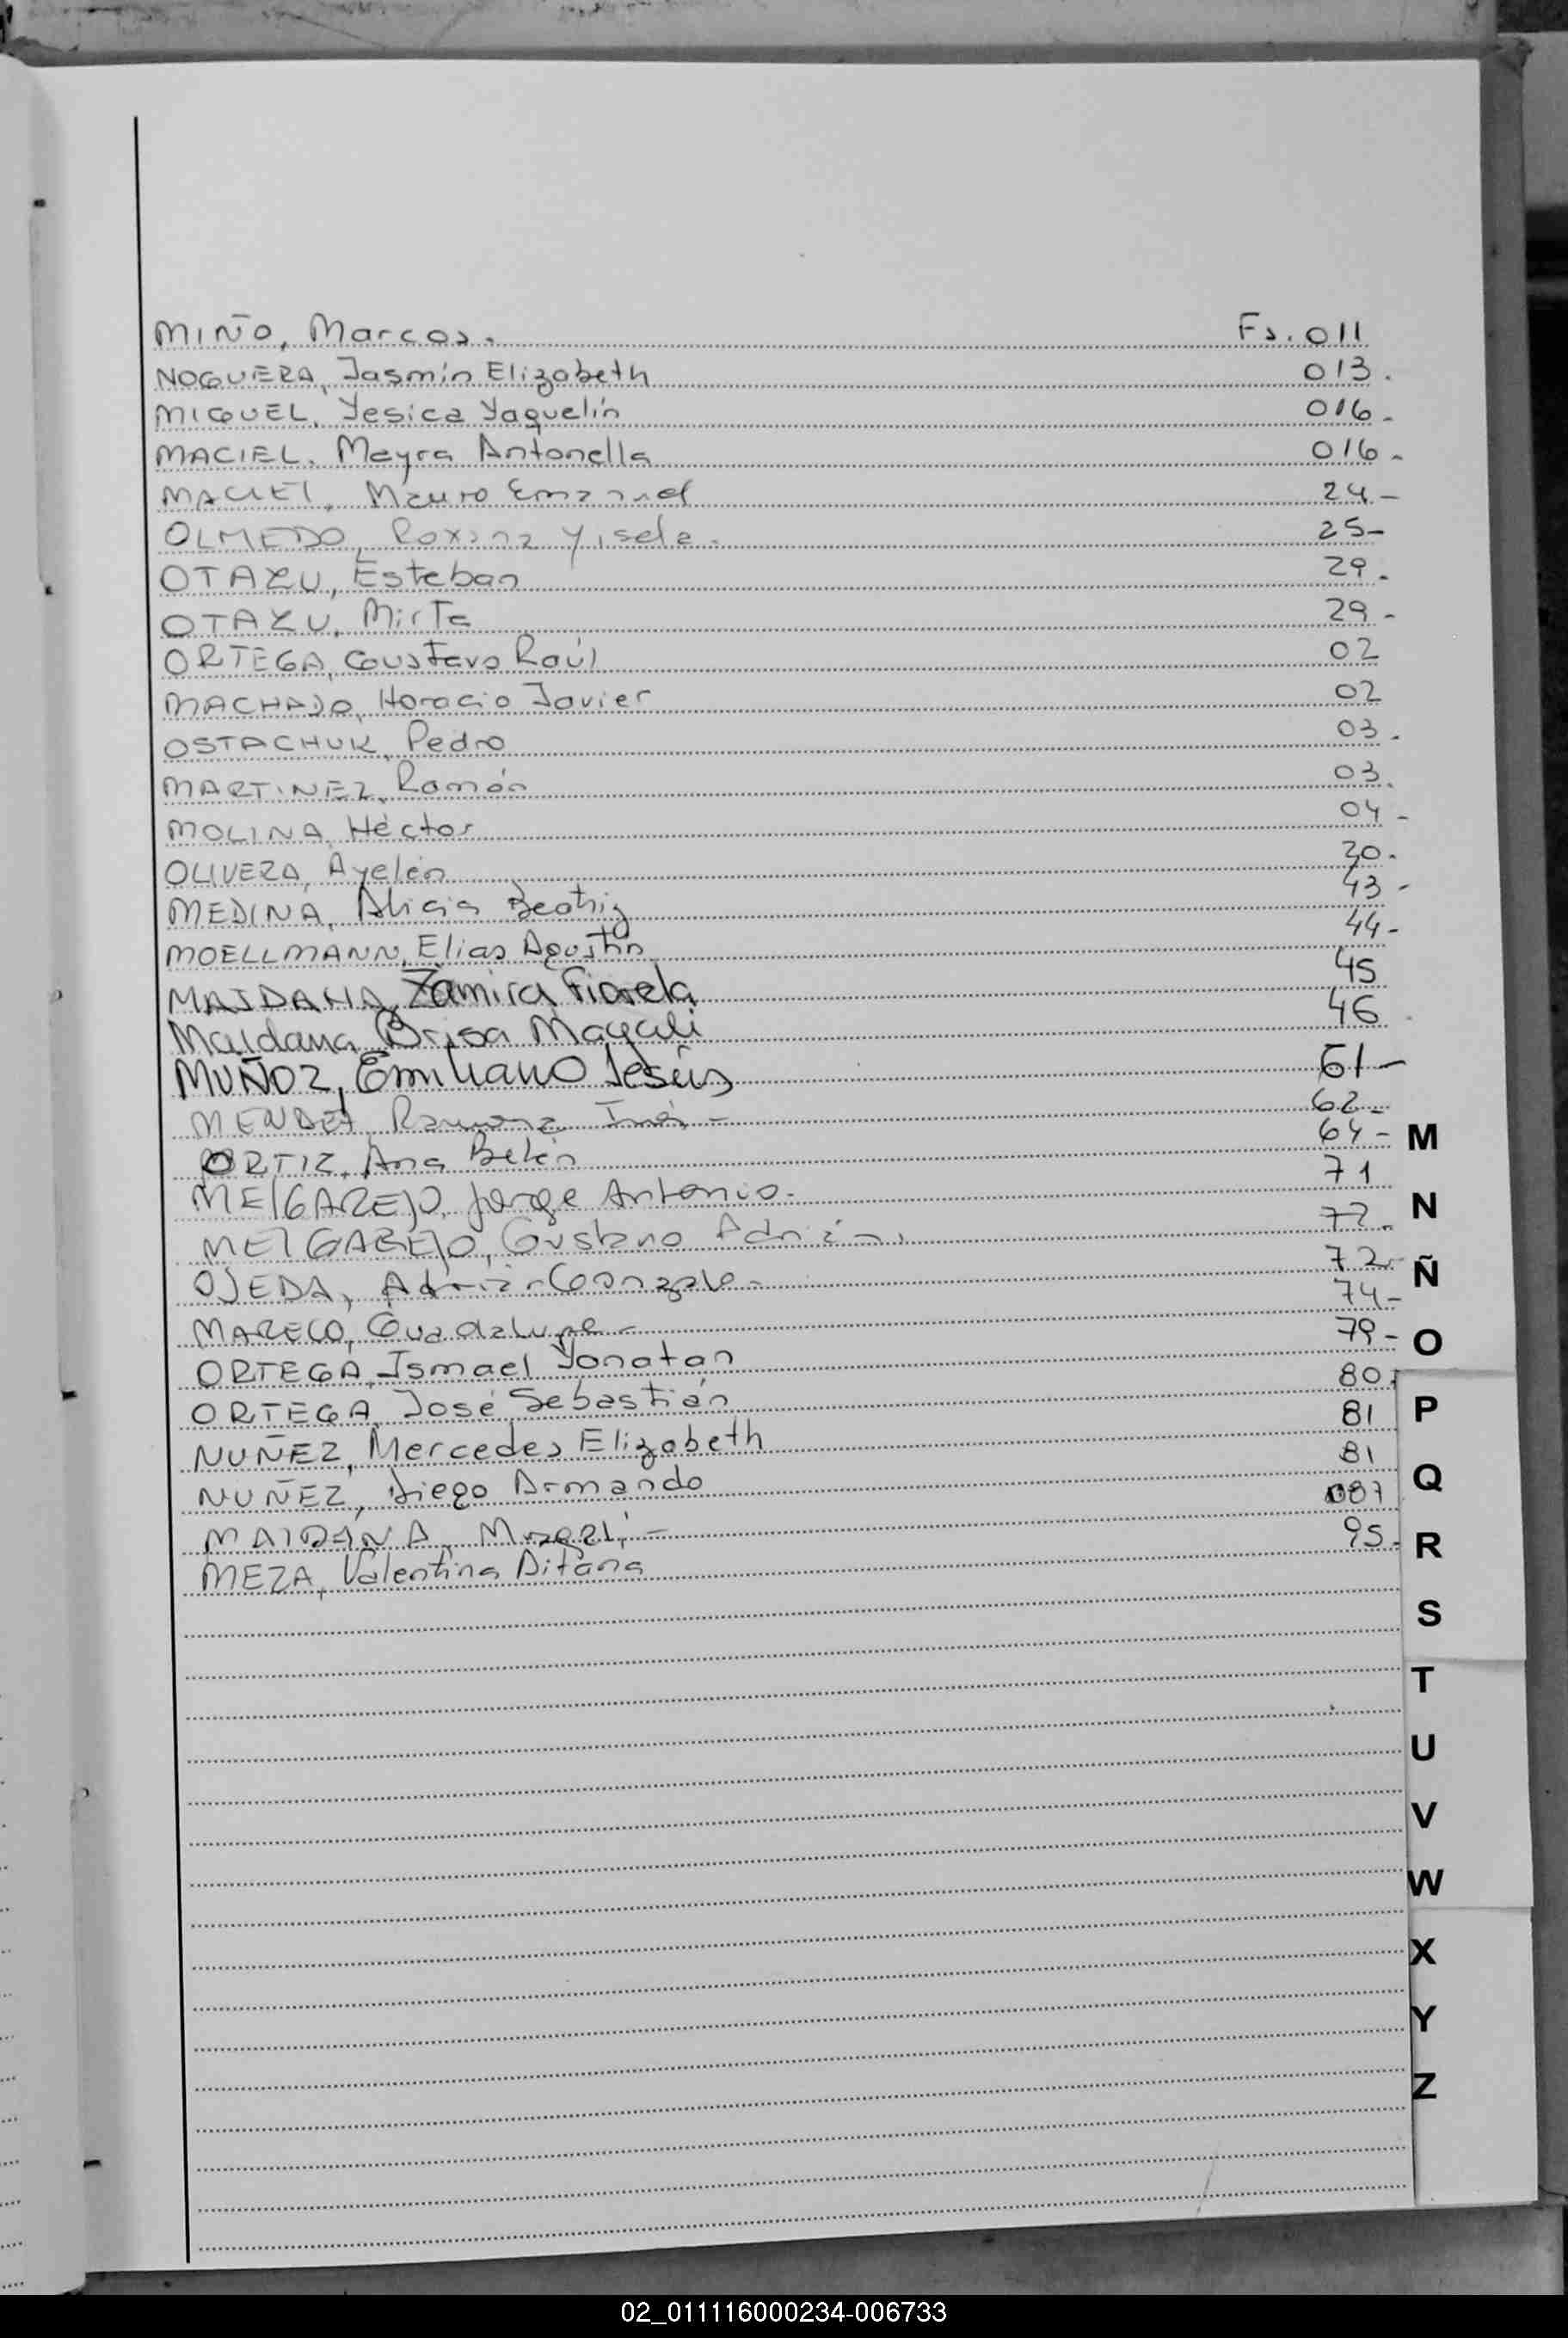 MIÑO, Marcos. Fs. 011
NOGUERA, Jasmín Elizabeth 013.
MIGUEL, Yesica Yaquelín 016-
MACIEL, Mayra Antonella 016-
MACIEL, Mauro Emanuel 24-
OLMEDO, Roxana Yisela. 25-
OTAZU, Esteban 29.
OTAZU, Mirta 29-
ORTEGA, Gustavo Raúl 02
MACHADO, Horacio Javier 02
OSTACHUK, Pedro 03.
MARTINEZ, Ramón 03.
MOLINA, Héctor 04-
OLIVERA, Ayelén 30.
MEDINA, Alicia Beatriz 43-
MOELLMANN, Elias Agustín 44-
MAIDANA, Zamira Fiorela 45
Maidana Brisa Magali 46
MUÑOZ, Emiliano Jesús 61-
MENDEZ, Ramona Inés - 62-
ORTIZ, Ana Belén 64-
MElGAREJO, Jorge Antonio- 71
MElGAREJO, Gustavo Adrián. 72-
OJEDA, Adrián Gonzalo- 72-
MARECO, Guadalupe- 74-
ORTEGA, Ismael Yonatan 79-
ORTEGA, José Sebastián 80.
NUÑEZ, Mercedes Elizabeth 81
NUÑEZ, Diego Armando 81
MAIDANA, Magalí - 087
MEZA, Valentina Ditana 95-
M
N
Ñ
O
P
Q
R
S
T
U
V
W
X
Y
Z
02_011116000234-006733